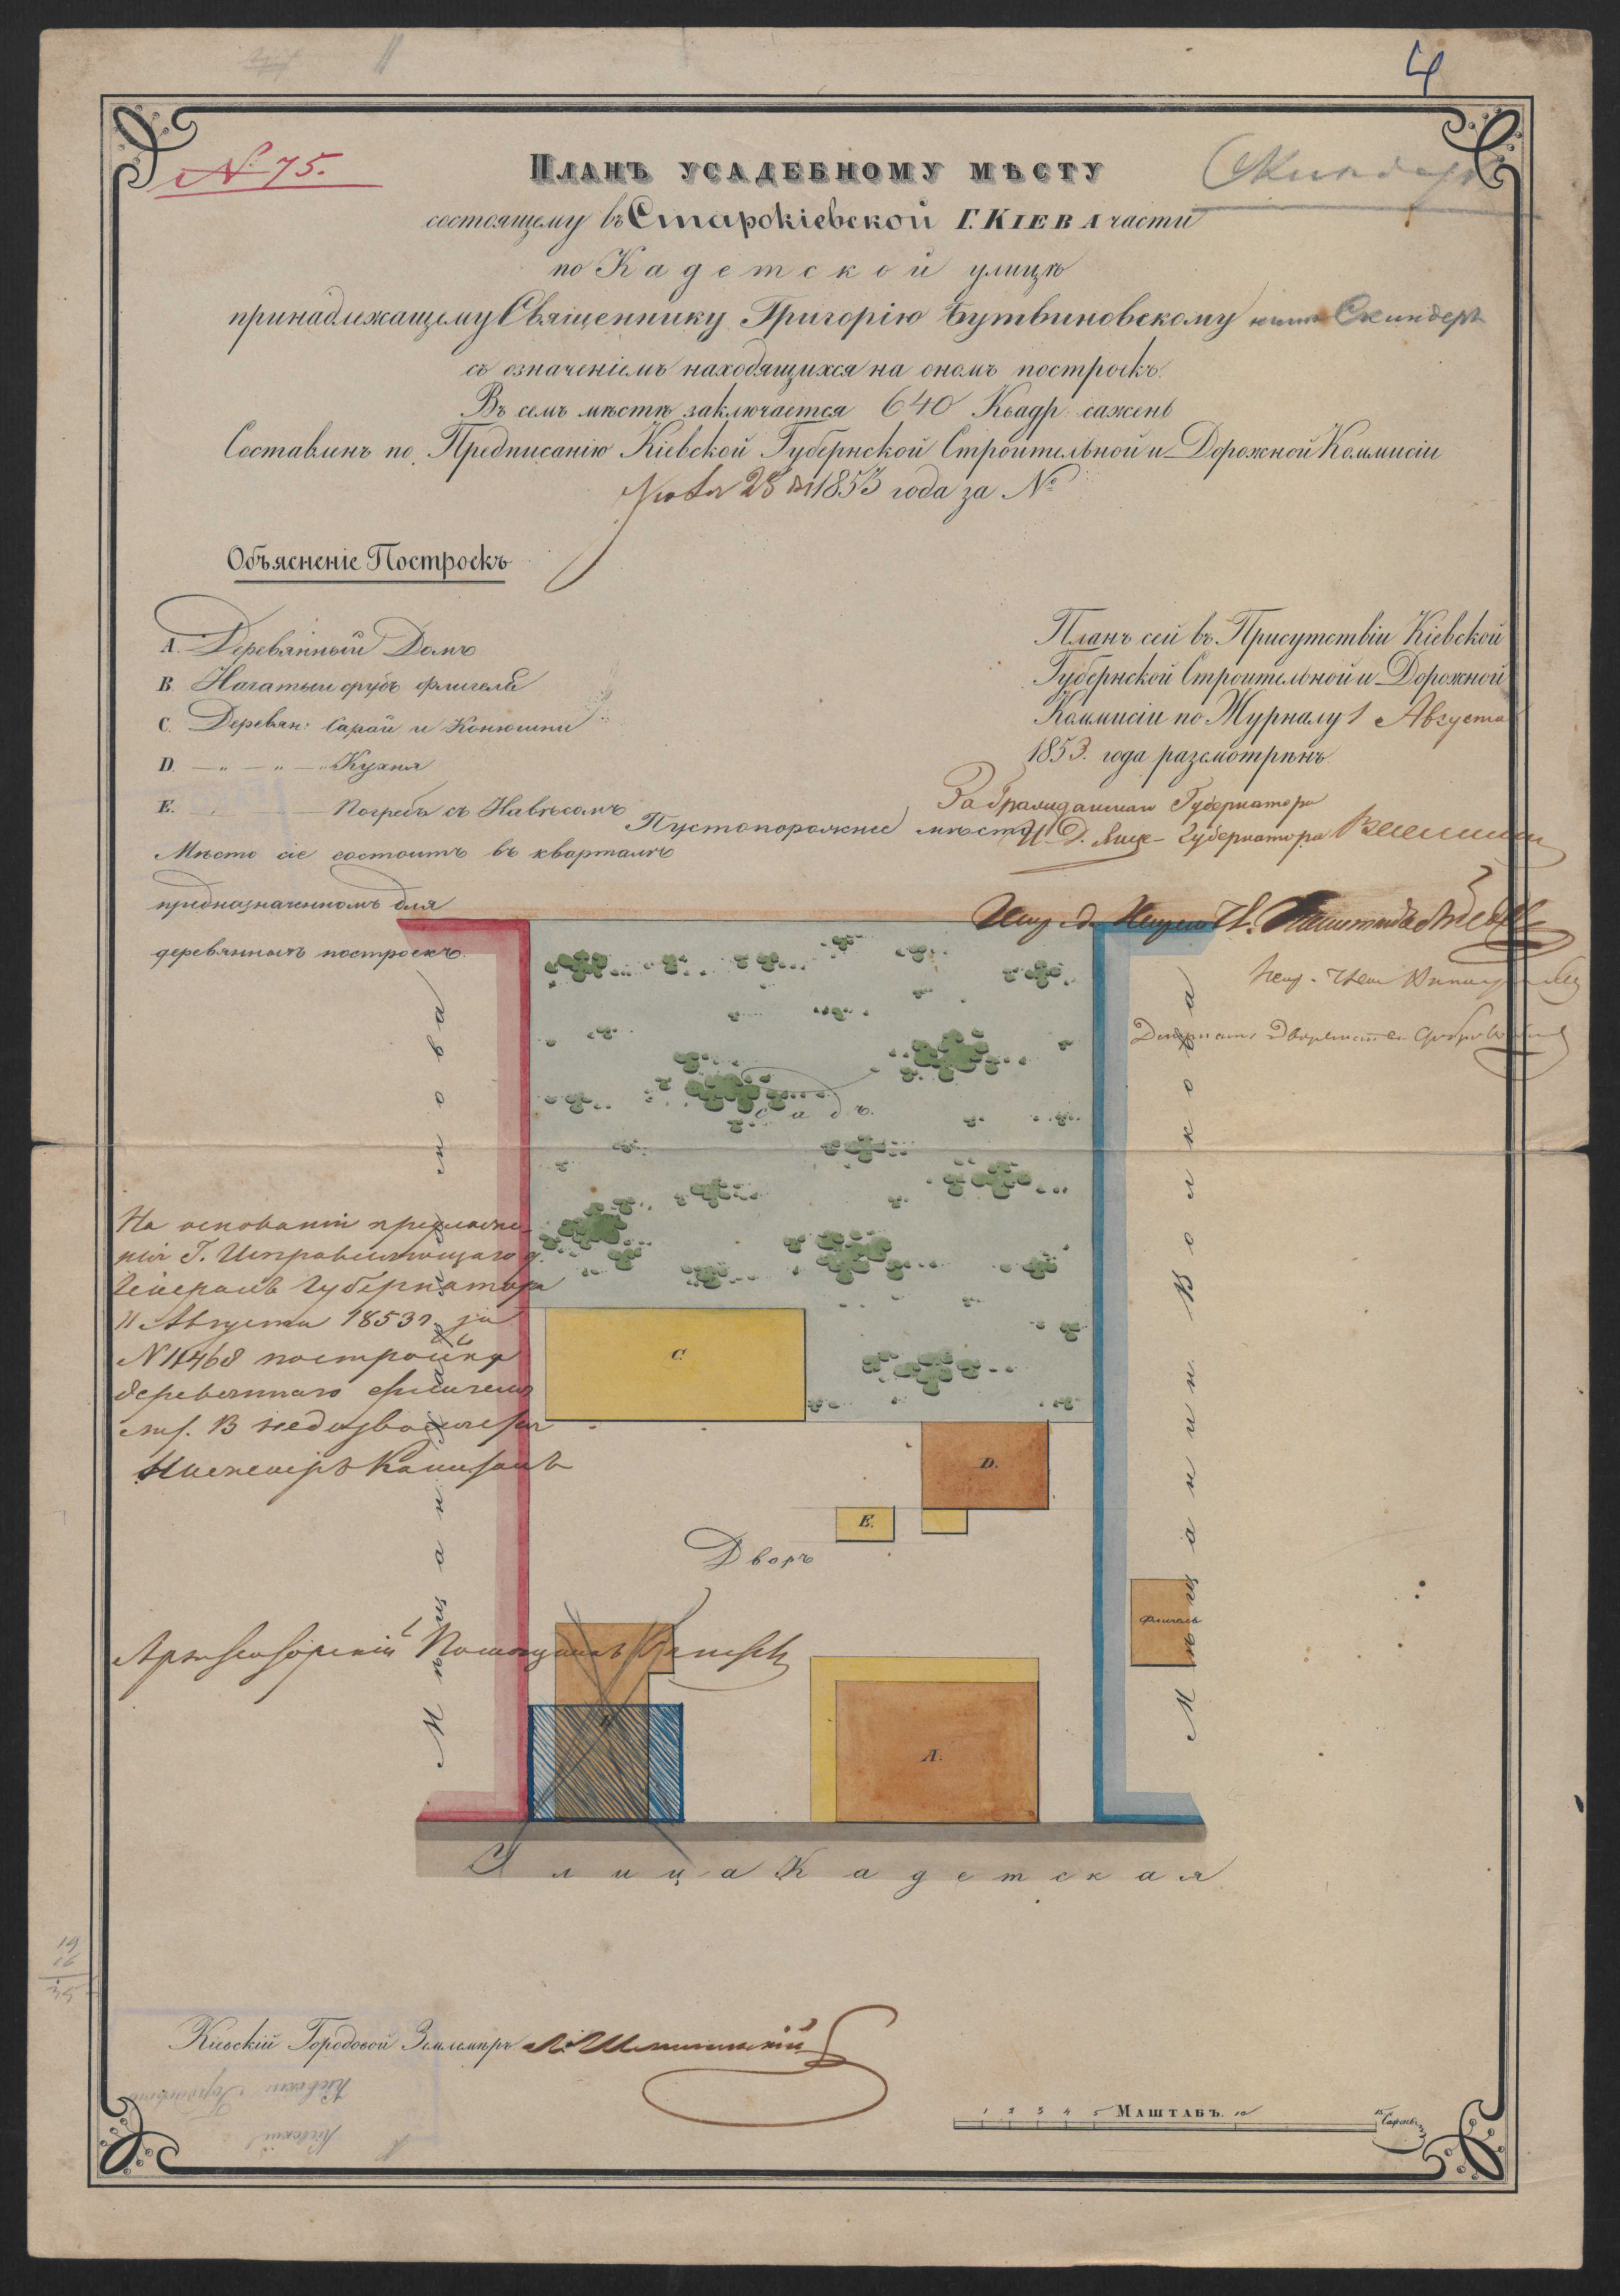 4
№ 75.
Скиндеръ
Планъ усадебному мѣсту
состоящему въ Старокіевской Г. Кіева части
по Кадетской улицѣ
принадлежащему Священнику Григорію Бутвиновскому нынѣ Скиндеръ
съ означеніемъ находящихся на ономъ построекъ.
Въ семъ мѣстѣ заключается 640 Квадр. сажень
Составленъ по Предписанію Кіевской Губернской Строительной и Дорожной Коммисіи
Іюля 28 дня 1853 года за №
Объясненіе Построекъ
A. Деревянный Домъ
B. Начатый срубъ флигеля
C. Деревян: Сарай и Конюшни
D. — „ — „ — „ Кухня
E. — Погребъ съ Навѣсомъ
Мѣсто сіе состоитъ въ кварталѣ
предназначенномъ для
деревянныхъ построекъ.
Планъ сей въ Присутствіи Кіевской
Губернской Строительной и Дорожной
Коммисіи по Журналу 1 Августа
1853. года разсмотрѣнъ
За Гражданскаго Губернатора
И. Д. Вице-Губернатора
Пустопорожнее мѣсто
Садъ.
На основаніи предложе-
нія Г. Исправляющаго д.
Генералъ Губернатора
11 Августа 1853 г. за
N 11468 постройка
деревяннаго флигеля
лит. В недозволяется
Инженеръ Капитанъ
Архитекторскій Помощникъ
Мѣщанина
Мѣщанина Волкова
C.
D.
E.
Дворъ
Флигель
A.
Улица Кадетская
19
16
35
Кіевскій Городовой Землемѣръ
1 2 3 4 5 Маштабъ. 10 15 Сажень